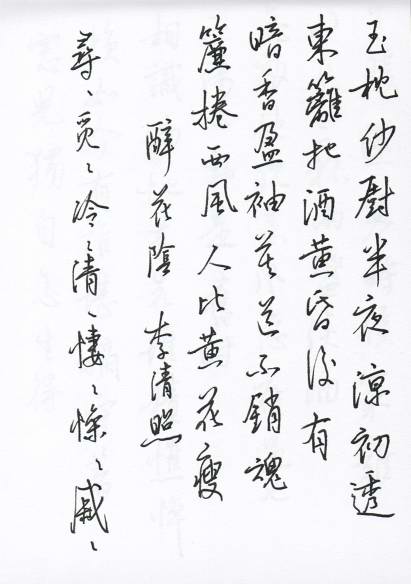 玉枕紗廚半夜涼初透
東籬把酒黃昏後有
暗香盈袖莫道不銷魂
簾捲西風人比黃花瘦
醉花陰 李清照
尋、覓、冷、清、悽、慘、戚、